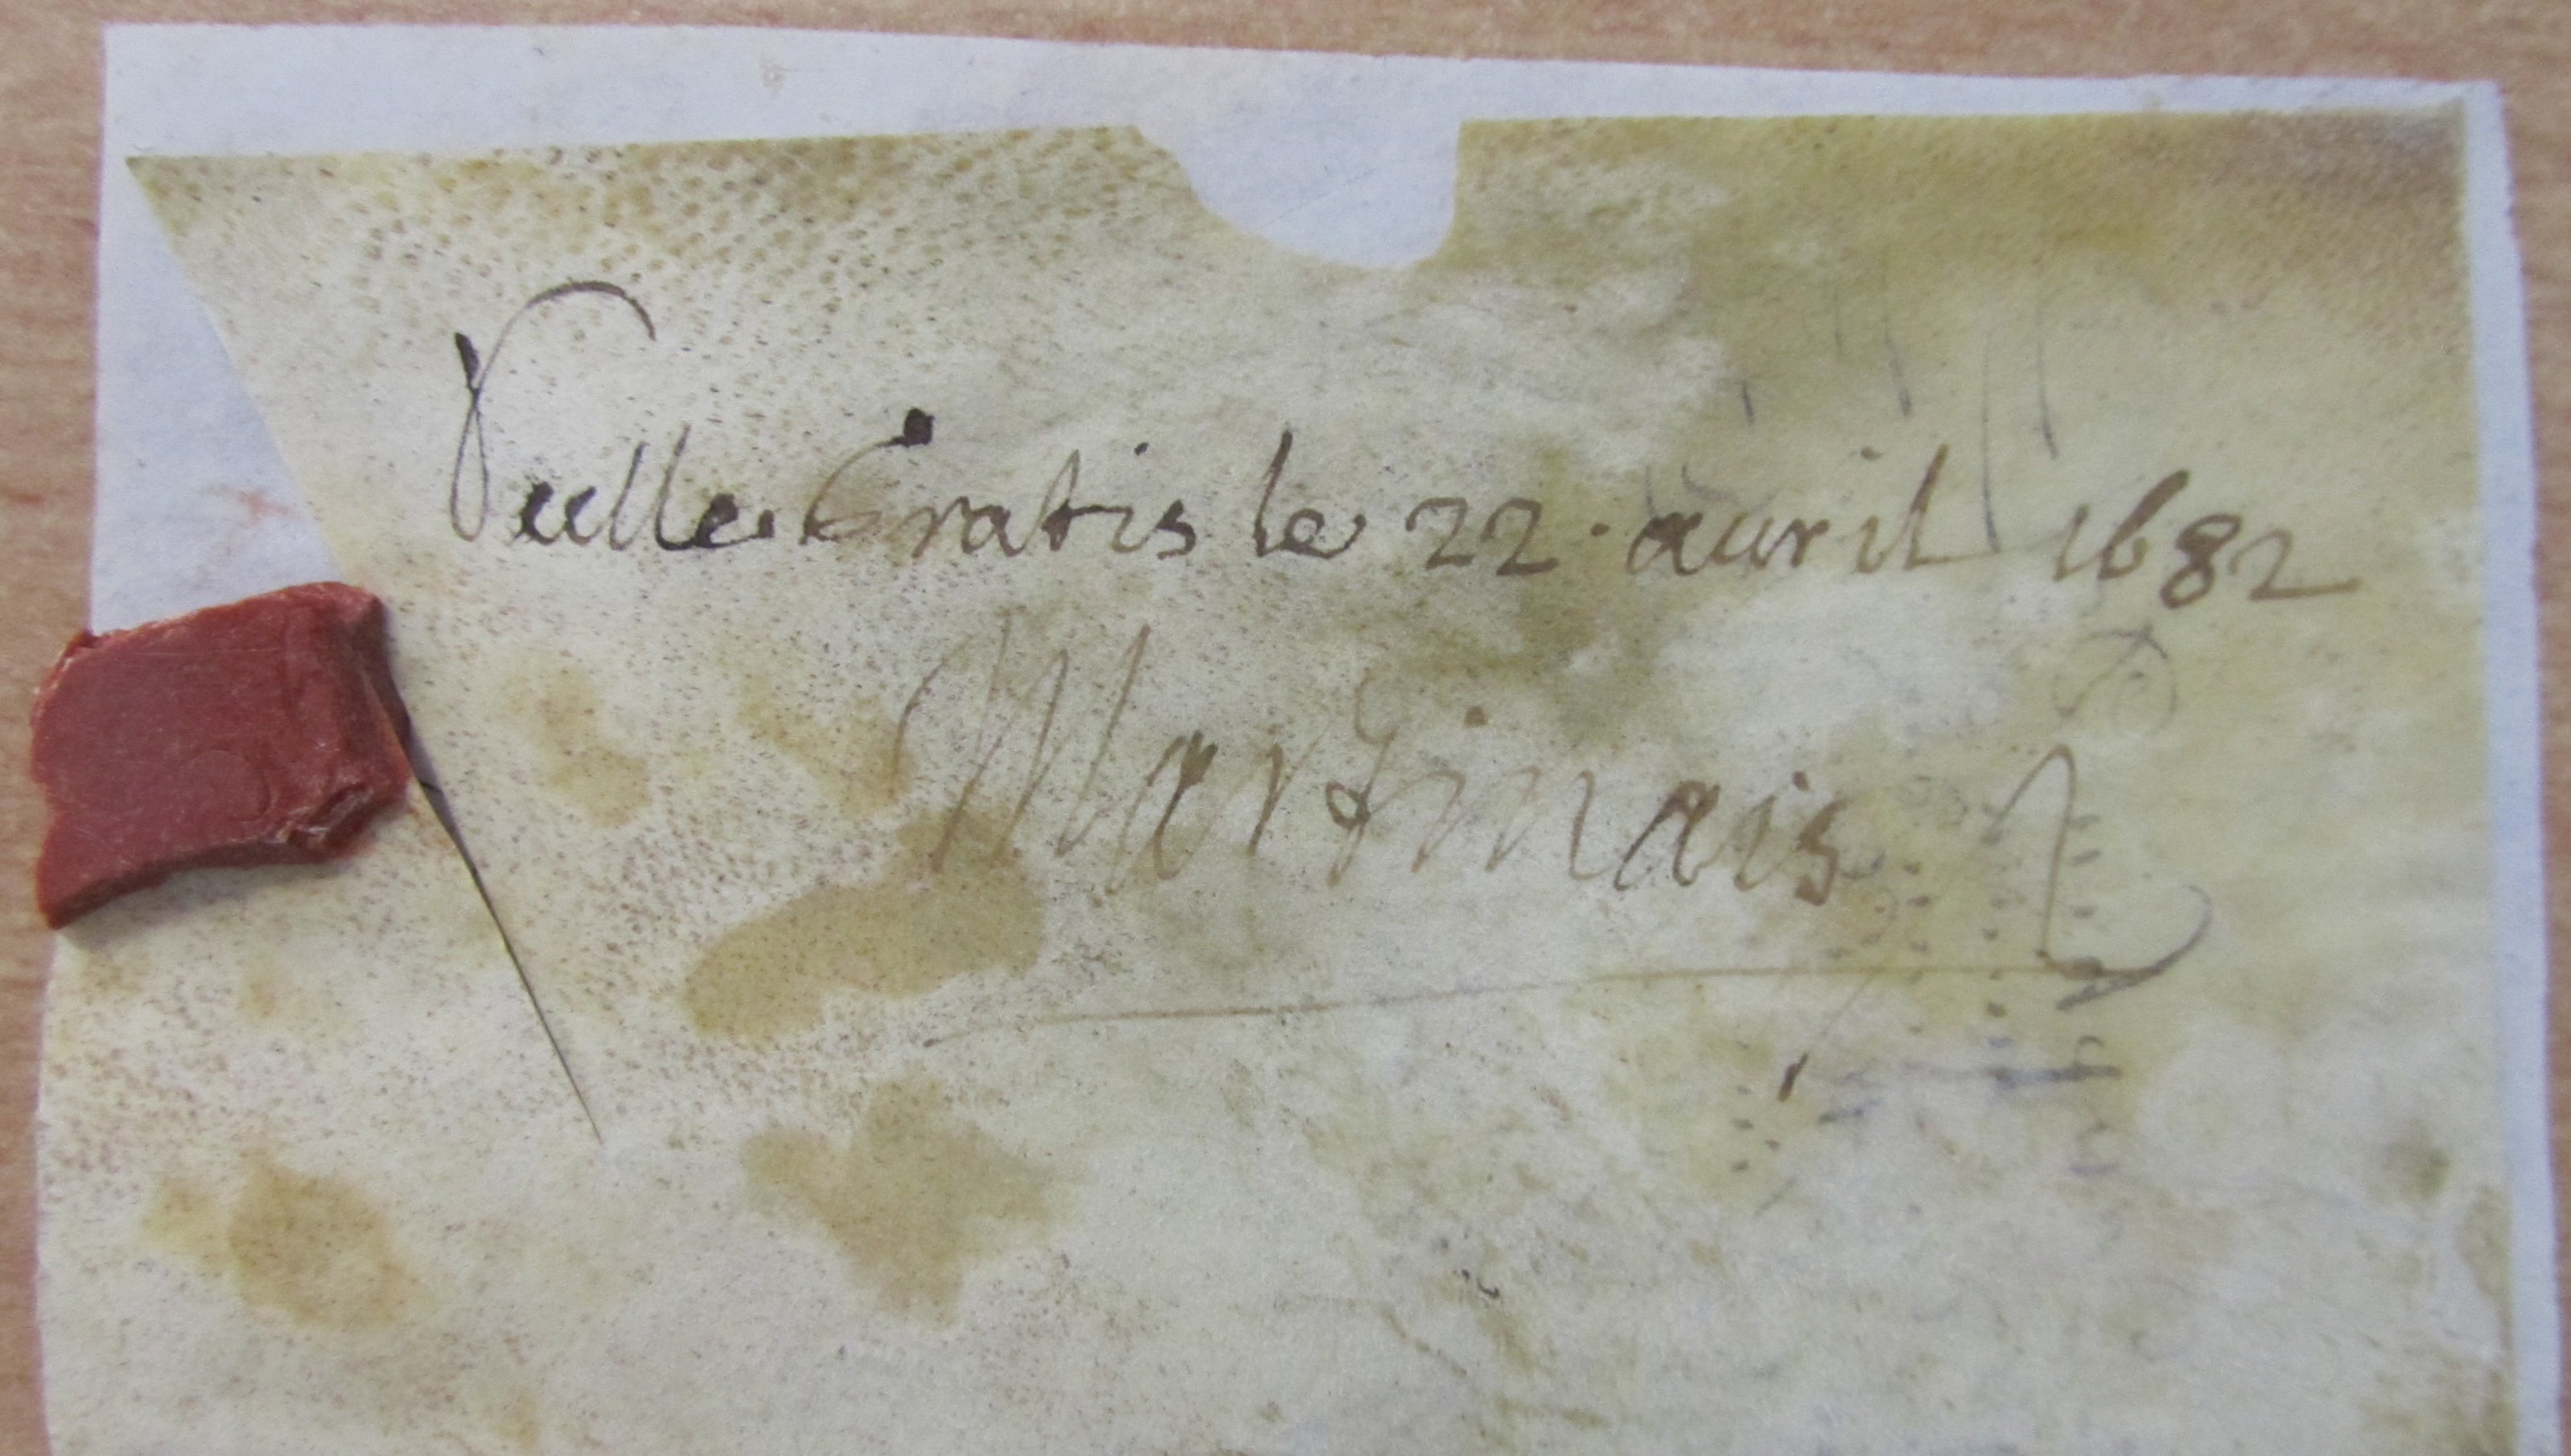 Veelle Gratis le 22 auril 1682
Martinais